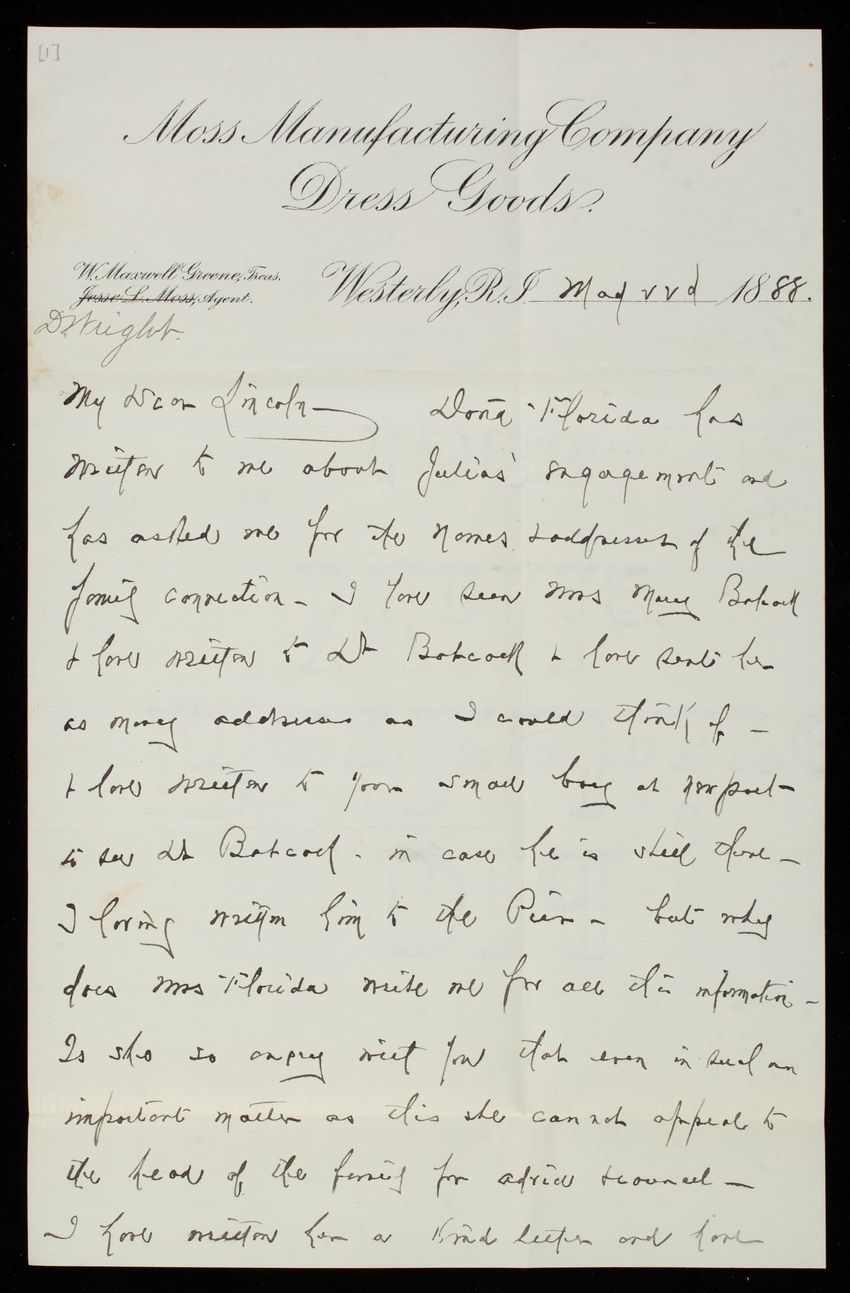 [1]
Moss Manufacturing Company
Dress Goods.
W. Maxwell Greene, Treas.
Jesse L. Moss, Agent.
Westerly, R.I. May 22d 1888.
D. Wright.
My Dear Lincoln— Dona Florida has
written to me about Julias' engagement and
has asked me for the names & addresses of the
family connection - I have seen Mrs Mary Babcock
& have written to Dr Babcock & have sent her
as many addresses as I could think of —
& have written to your small boy at Newport—
to see Dr Babcock - in case he is still there —
I having written him to the Pier - but why
does Mrs Florida write me for all this information -
Is she so angry with you that even in such an
important matter as this she cannot appeal to
the head of the family for advice & counsel —
I have written her a kind letter and have